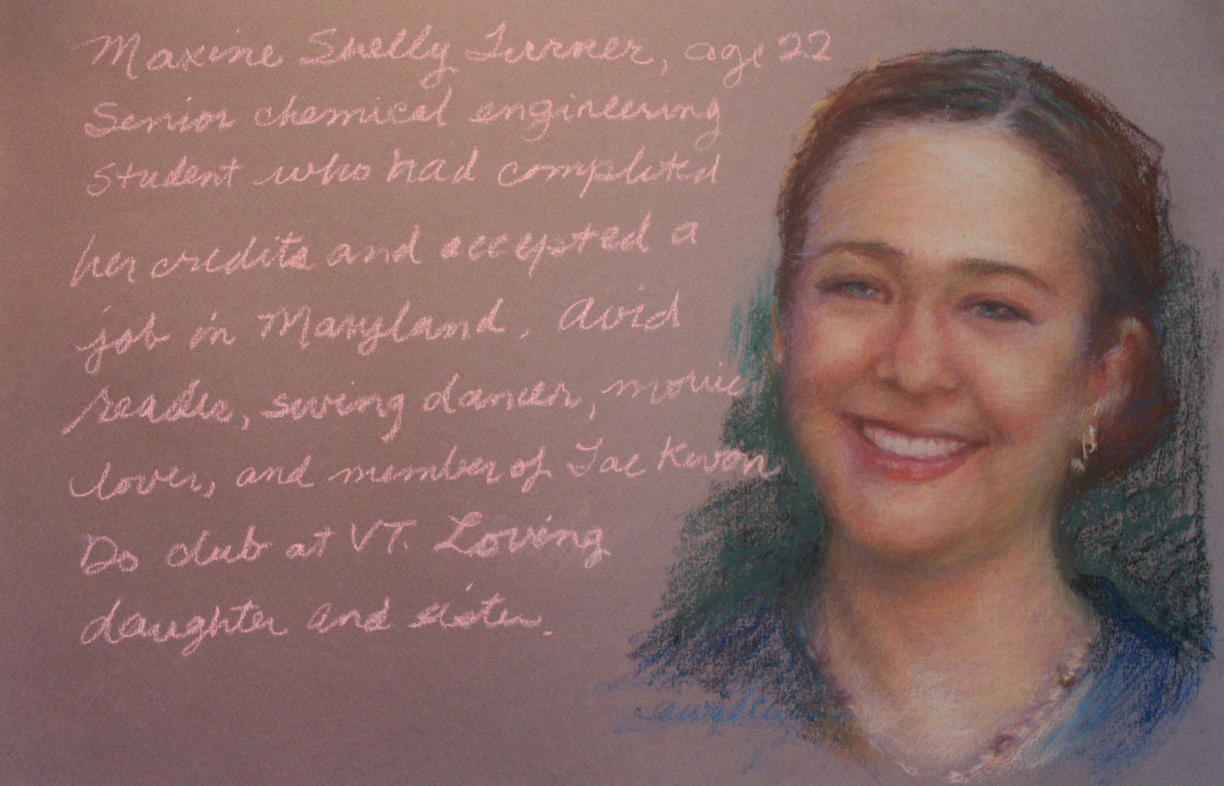 Maxine Shelly Turner, age 22
Senior chemical engineering
student who had completed
her credits and accepted a
job in Maryland. Avid
reader, swing dancer, movie
lover, and member of Tae Kwon
Do club at VT. Loving
daughter and sister.